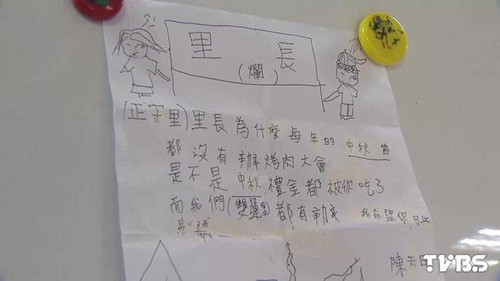 里長
(爛)
(正守里)里長為什麼每年的中秋節
都沒有辦烤肉大會
是不是中秋禮金都被你吃了
而我們(雙營里)都有
陳
TVBS